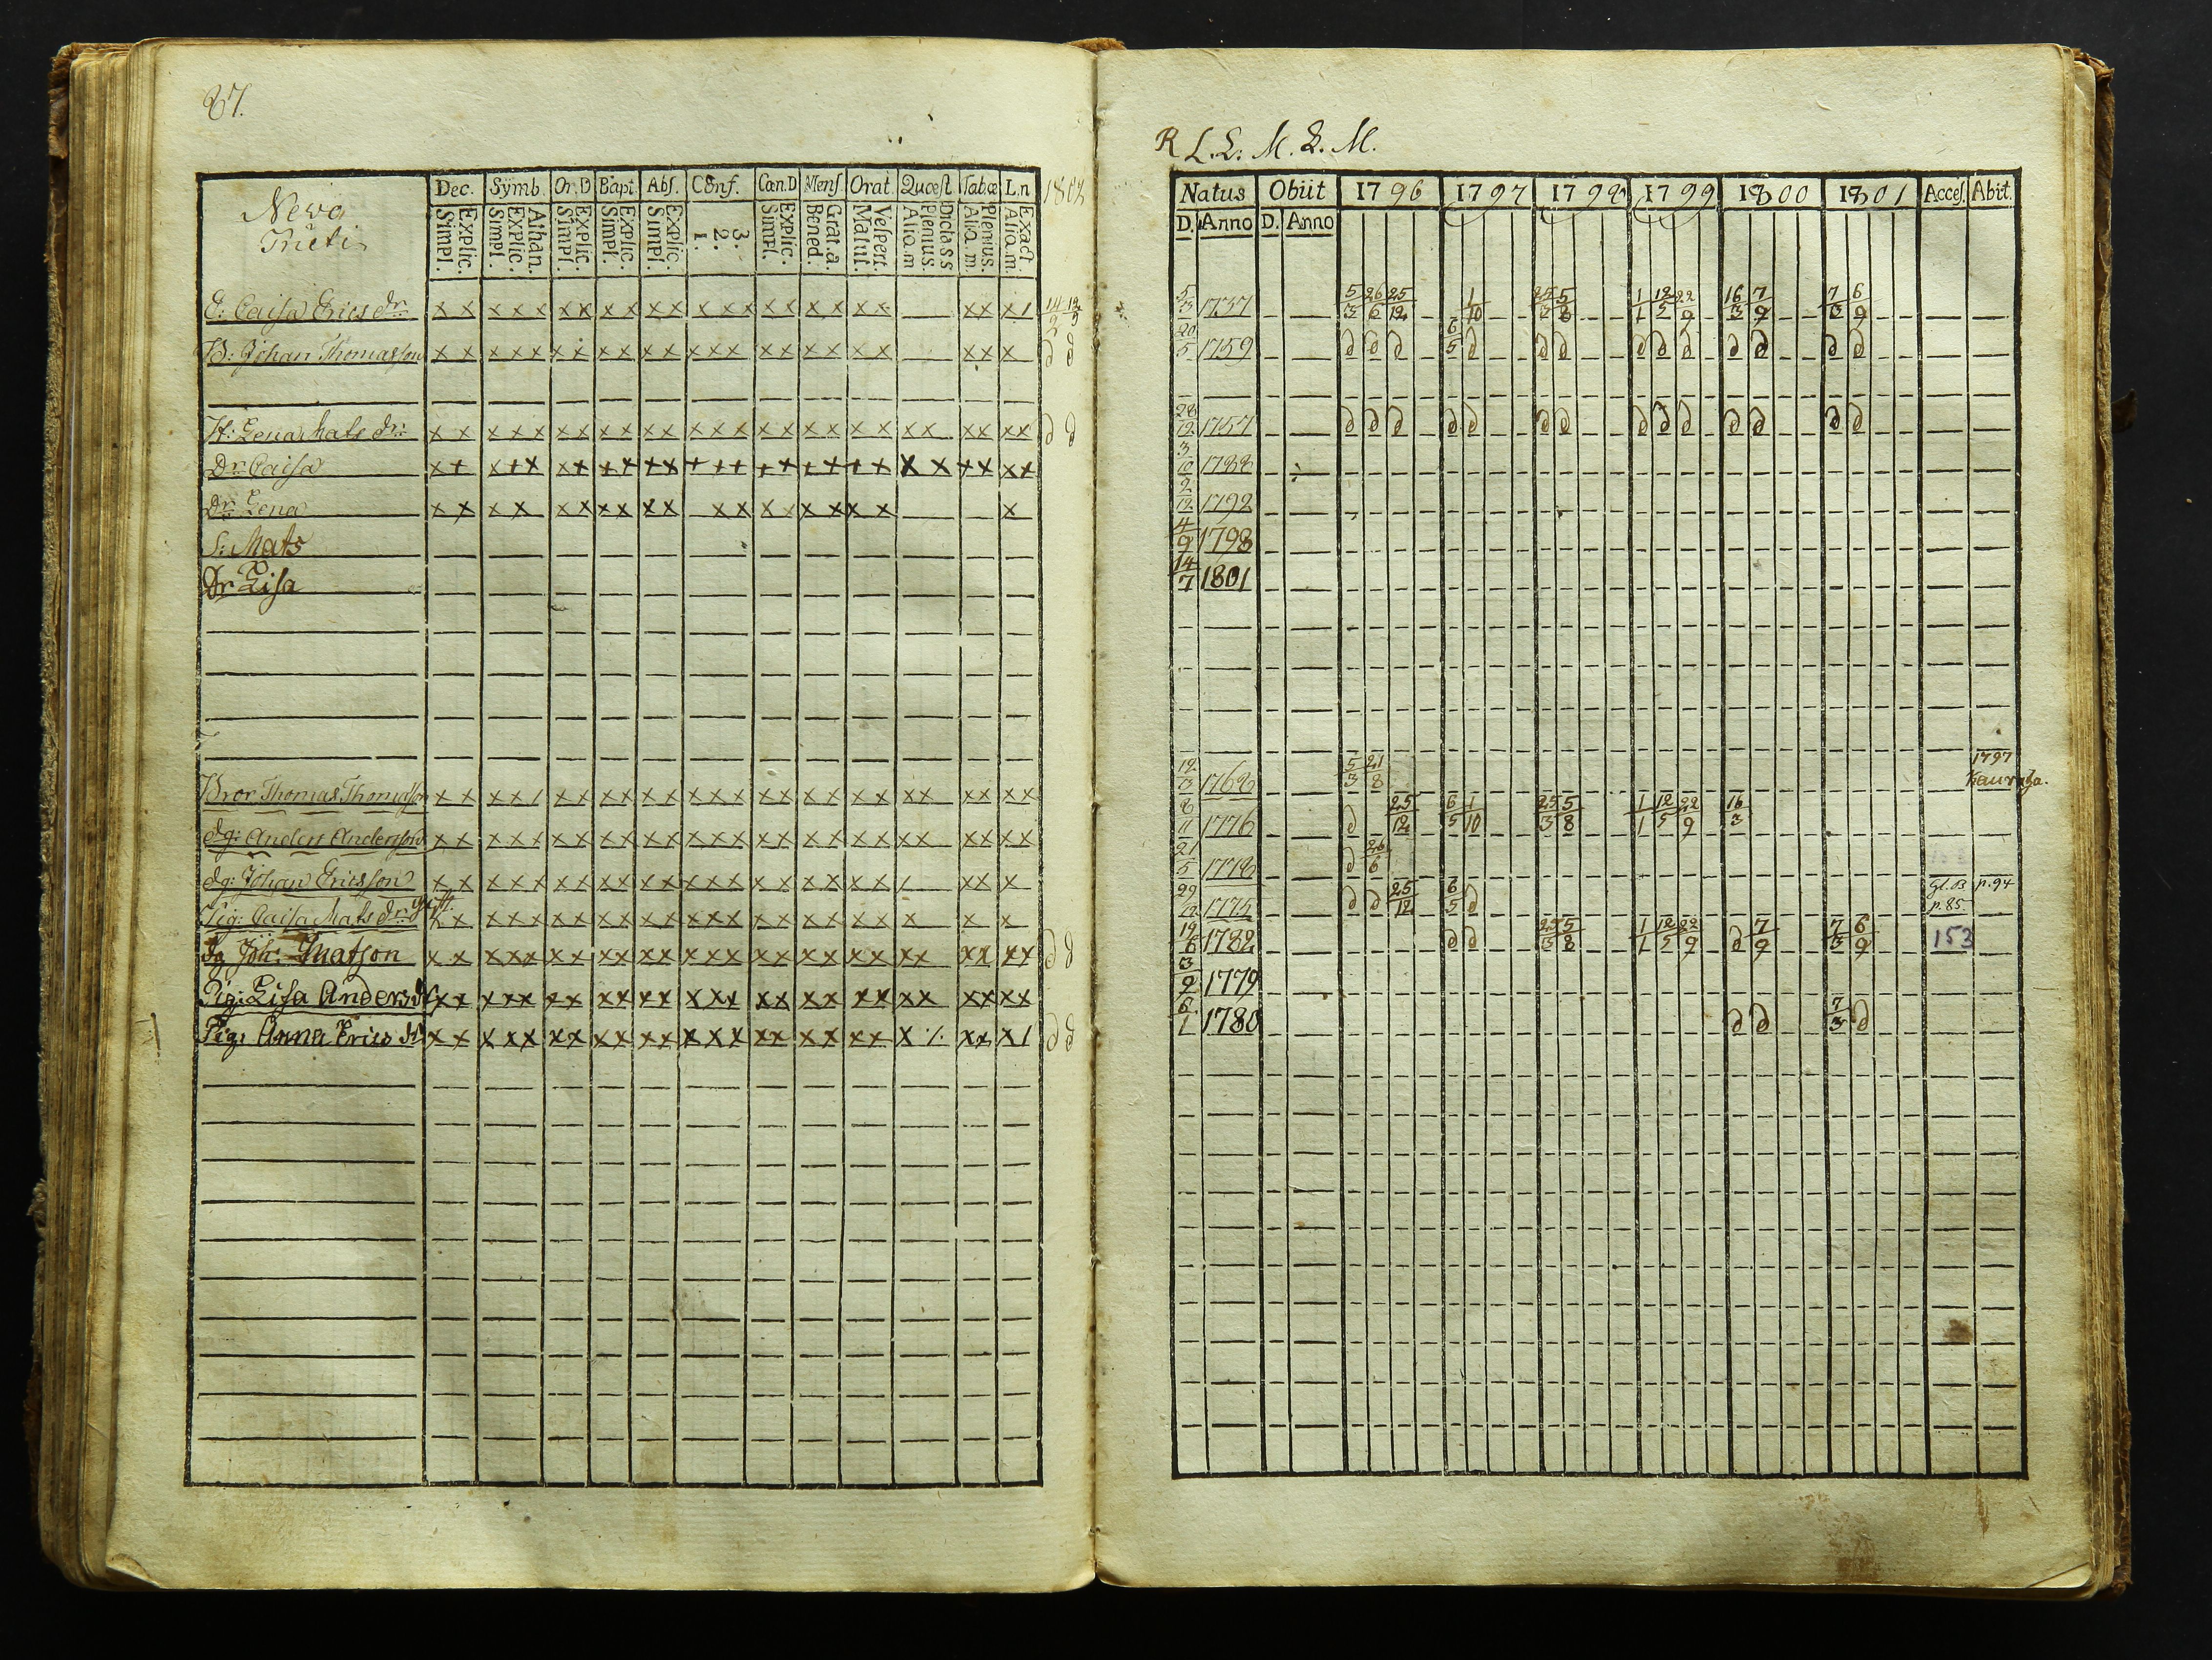 87.
Dec. Symb. Or.D Bapt. Abs. Conf. Cœn.D Mens. Orat. Quæst Tab.œ L.n 1802
Neva
Explic. Simpl. Athan. Explic. Simpl. Explic. Simpl. Explic. Simpl. Explic. Simpl. 3. 2. 1. Explic. Simpl. Grat.a. Bened. Vespert. Matut. Dicta ss Plenius. Aliq.m Plenius. Aliq.m Exact. Aliq.m
E: Caisa Ericsdr x x x x x x x x x x x x x x x x x x x x x x x x 1 14/3 12/9
B: Johan Thomasson x x x x x x x x x x x x x x x x x x x x x x x x d d
H: Lena Matsdr: x x x x x x x x x x x x x x x x x x x x x x x x x x d d
Dr: Caisa x x x x x x x x x x x x x x x x x x x x x x x x x x
Dr: Lena x x x x x x x x x x x x x x x x x x x x
S: Mats
Dr Lisa
Bror Thomas Thomasson x x x x 1 x x x x x x x x x x x x x x x x x x x x x x
dg: Anders Andersson x x x x x x x x x x x x x x x x x x x x x x x x x x x
dg: Johan Ericsson x x x x x x x x x x x x x x x x x x x x x x x x
Pig: Caisa Matsdr gift. x x x x x x x x x x x x x x x x x x x x x x x
dg Joh: Matsson x x x x x x x x x x x x x x x x x x x x x x x x x x d d
Pig: Lisa Andersd x x x x x x x x x x x x x x x x x x x x x x x x x x
Pig: Anna Erics d x x x x x x x x x x x x x x x x x x x x x x x x 1 d d
R L. L: M. L. M.
Natus Obiit 1796 1797 1798 1799 1800 1801 Acces. Abit.
D. Anno D. Anno
5/3 1737 5/3 26/6 25/12 1/10 25/3 5/8 1/1 12/5 22/9 16/3 7/9 7/3 6/9
20/5 1759 d d d 6/5 d d d d d d d d d d
28/12 1757 d d d d d d d d d d d d d d
3/10 1788
2/12 1792
4/9 1798
14/7 1801
12/3 1762 5/3 21/8 1797
8/11 1776 d 25/12 6/5 1/10 25/3 5/8 1/1 12/5 22/9 16/3
21/5 1778 d 26/6
29/12 1775 d d 25/12 6/5 d gl.B p.85 p.94
19/6 1782 d d 25/3 5/8 1/1 12/5 22/9 d 7/9 7/3 6/9 153
3/9 1779
6/1 1780 d d 7/3 d